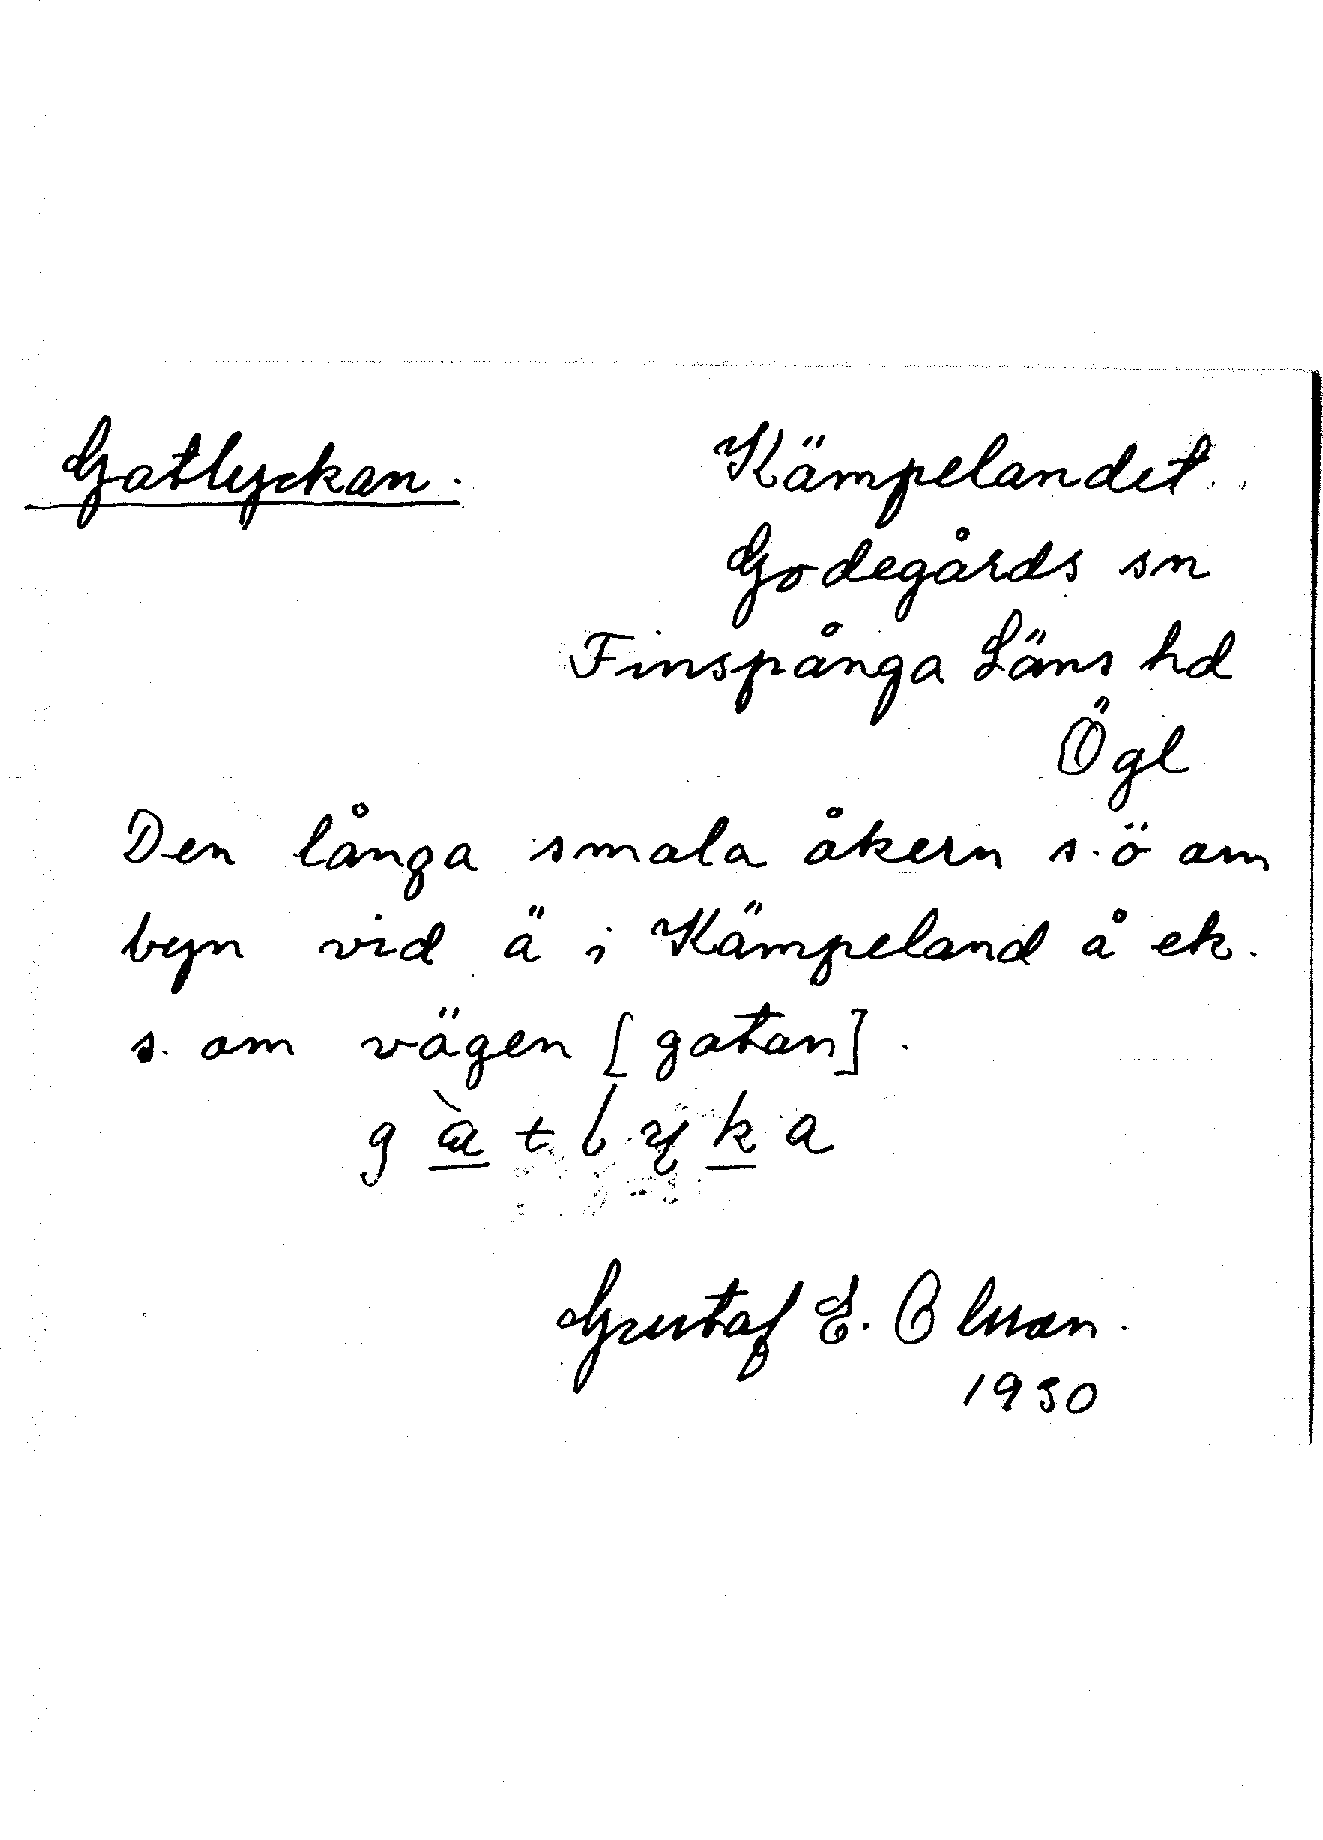 Gatlyckan. Kämpelandet.
Godegårds sn
Finspånga Läns hd
Ögl
Den långa smala åkern s.ö om
byn vid ä i Kämpeland å ek.
s. om vägen [gatan].
gàtlyka
Gustaf E. Olsson.
1930